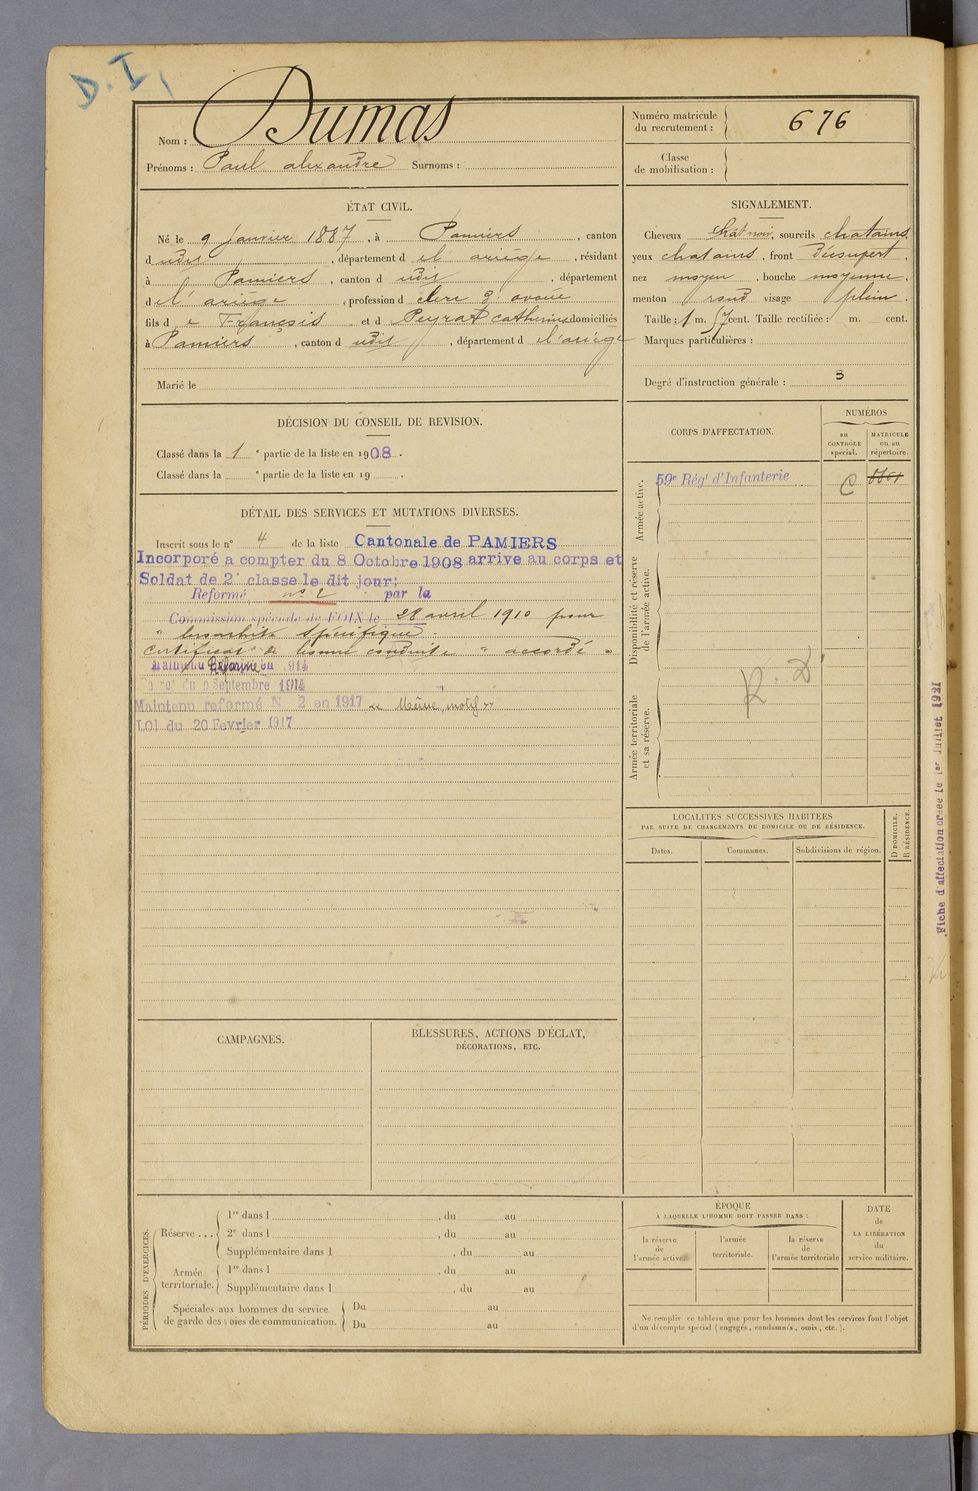 D. I,
Nom : Dumas
Prénoms : Paul alexandre Surnoms :
Numéro matricule du recrutement : 676
Classe de mobilisation :
ÉTAT CIVIL.
Né le 9 janvier 1887, à Pamiers, canton
d udit, département d el ariège, résidant
à Pamiers, canton d udit, département
d el'ariège, profession d clerc d'avoué
fils d e François et d Peyrat catherine domiciliés
à Pamiers, canton d udit, département d el'ariège
Marié le
SIGNALEMENT.
Cheveux chât noir, sourcils chatains,
yeux chatains, front découvert,
nez moyen, bouche moyenne,
menton rond visage plein.
Taille : 1 m. 57 cent. Taille rectifiée : m. cent.
Marques particulières :
Degré d'instruction générale : 3
DÉCISION DU CONSEIL DE REVISION.
Classé dans la 1e partie de la liste en 1908.
Classé dans la e partie de la liste en 19 .
DÉTAIL DES SERVICES ET MUTATIONS DIVERSES.
Inscrit sous le n° 4 de la liste Cantonale de PAMIERS
Incorporé a compter du 8 Octobre 1908 arrive au corps et
Soldat de 2e classe le dit jour;
Reformé n° 2 par la
Commission spéciale de FOIX le 28 avril 1910 pour
" bronchite spécifique.
Certificat de bonne conduite " accordé "
Maintenu Réformé en 1914
du 9 Septembre 1914
Maintenu reformé N° 2 en 1917 " Même motif "
LOI du 20 Fevrier 1917
CORPS D'AFFECTATION.
NUMÉROS
au CONTRÔLE spécial.
MATRICULE ou au répertoire.
Armée active.
59e Régt d'Infanterie
C
Disponibilité et réserve de l'armée active.
Armée territoriale et sa réserve.
R. D
LOCALITÉS SUCCESSIVES HABITÉES
PAR SUITE DE CHANGEMENTS DE DOMICILE OU DE RÉSIDENCE.
Dates.
Communes.
Subdivisions de région.
D DOMICILE. R RÉSIDENCE.
Fiche d'affectation créée le 1er Juillet 1921
CAMPAGNES.
BLESSURES, ACTIONS D'ÉCLAT,
DÉCORATIONS, ETC.
PÉRIODES D'EXERCICES.
Réserve ...
1re dans l , du au
2e dans l , du au
Supplémentaire dans l , du au
Armée territoriale.
1re dans l , du au
Supplémentaire dans l , du au
Spéciales aux hommes du service de garde des voies de communication.
Du au
Du au
ÉPOQUE
À LAQUELLE L'HOMME DOIT PASSER DANS :
la réserve de l'armée active.
l'armée territoriale.
la réserve de l'armée territoriale
DATE de LA LIBÉRATION du service militaire.
Ne remplir ce tableau que pour les hommes dont les services font l'objet
d'un décompte spécial (engagés, condamnés, omis, etc.).